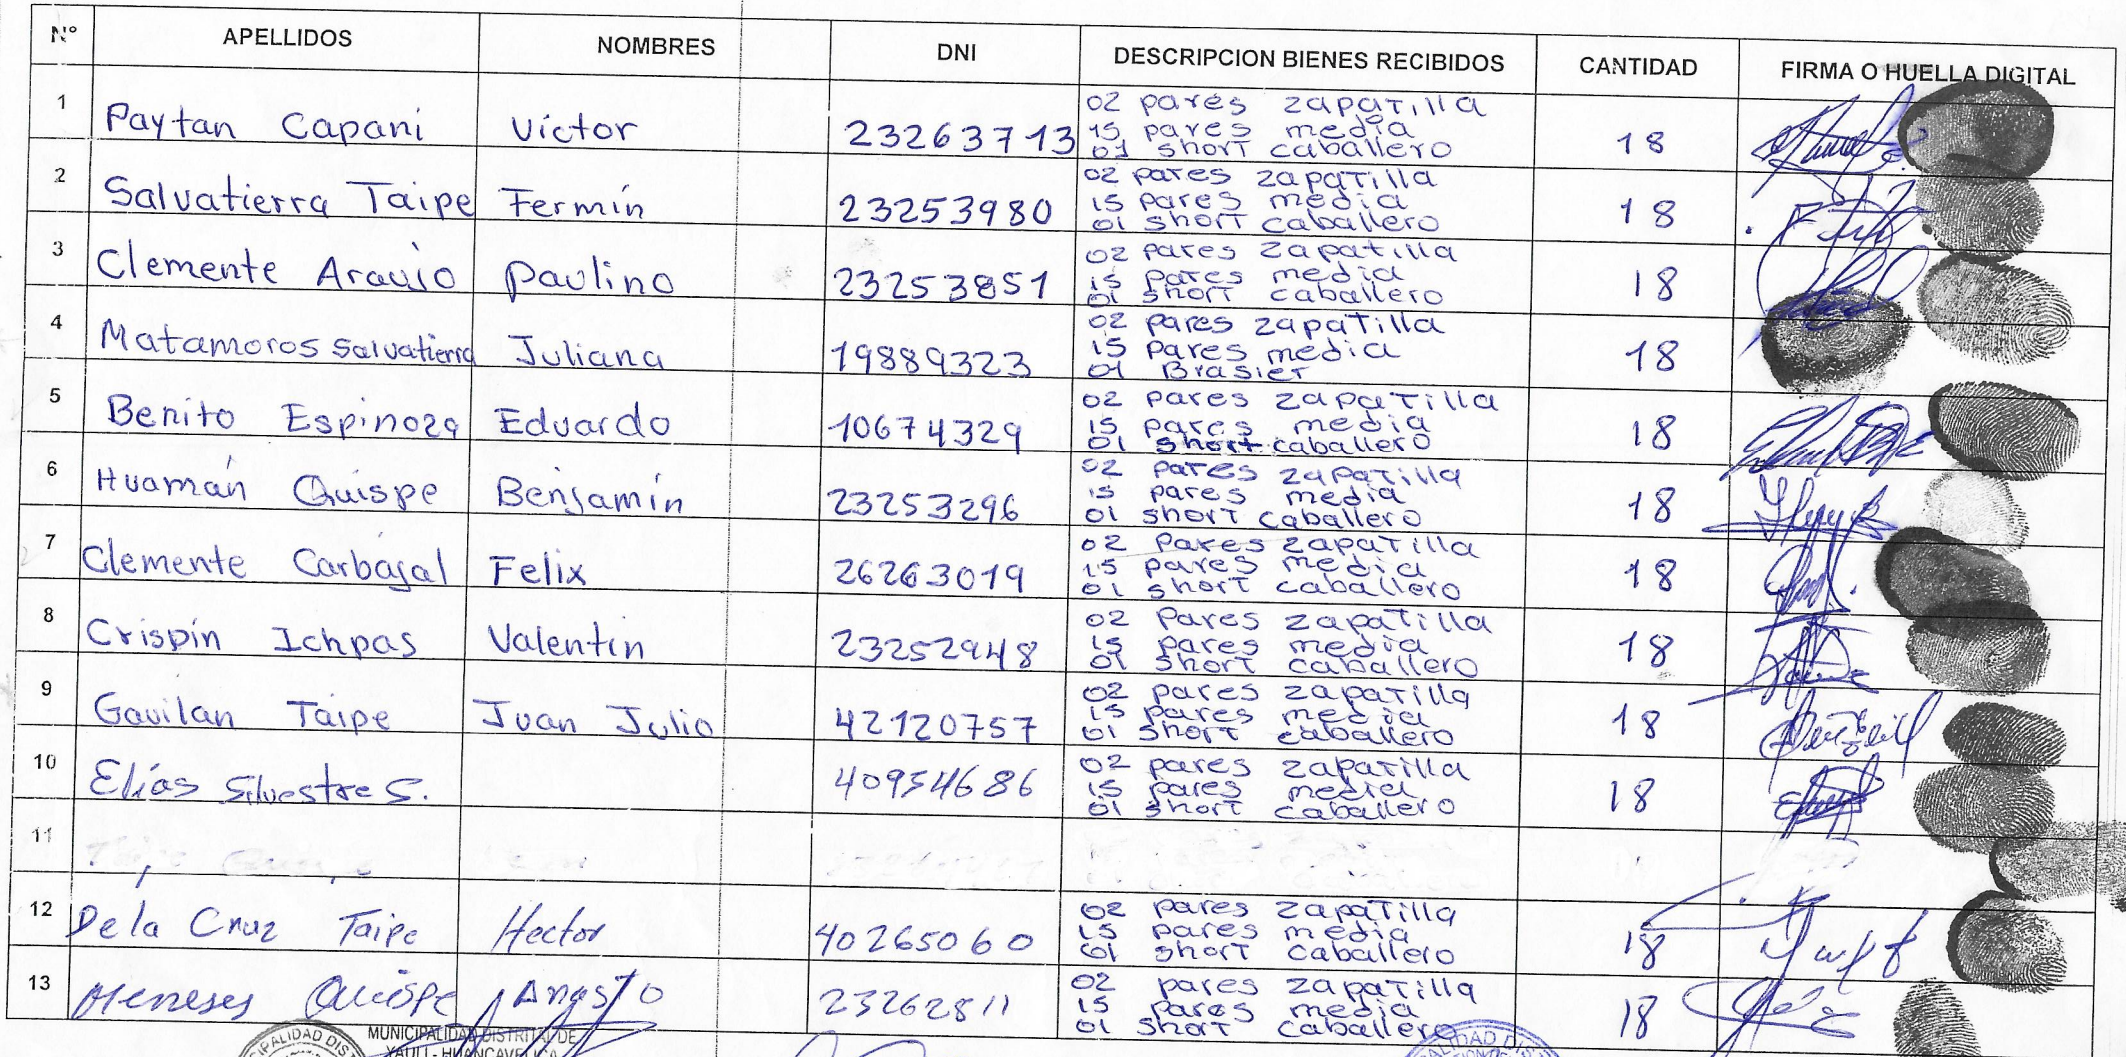 Nº APELLIDOS NOMBRES DNI DESCRIPCION BIENES RECIBIDOS CANTIDAD FIRMA O HUELLA DIGITAL
1 Paytan Capani Victor 23263713 02 pares zapatilla 18
15 pares media
01 short caballero
2 Salvatierra Taipe Fermín 23253980 02 pares zapatilla 18
15 pares media
01 short caballero
3 Clemente Araujo Paulino 23253851 02 pares zapatilla 18
15 pares media
01 short caballero
4 Matamoros Salvatierra Juliana 19889323 02 pares zapatilla 18
15 pares media
01 Brasier
5 Benito Espinoza Eduardo 10674329 02 pares zapatilla 18
15 pares media
01 short caballero
6 Huamán Quispe Benjamín 23253296 02 pares zapatilla 18
15 pares media
01 short caballero
7 Clemente Carbajal Felix 26263019 02 pares zapatilla 18
15 pares media
01 short caballero
8 Crispín Ichpas Valentín 23252948 02 pares zapatilla 18
15 pares media
01 short caballero
9 Gavilan Taipe Juan Julio 42120757 02 pares zapatilla 18
15 pares media
01 short caballero
10 Elías Silvestre S. 40954686 02 pares zapatilla 18
15 pares media
01 short caballero
11
12 De la Cruz Taipe Hector 40265060 02 pares zapatilla 18
15 pares media
01 short caballero
13 Meneses Quispe Angsto 23262811 02 pares zapatilla 18
15 pares media
01 short caballero
MUNICIPALIDAD DISTRITAL DE
YAULI - HUANCAVELICA